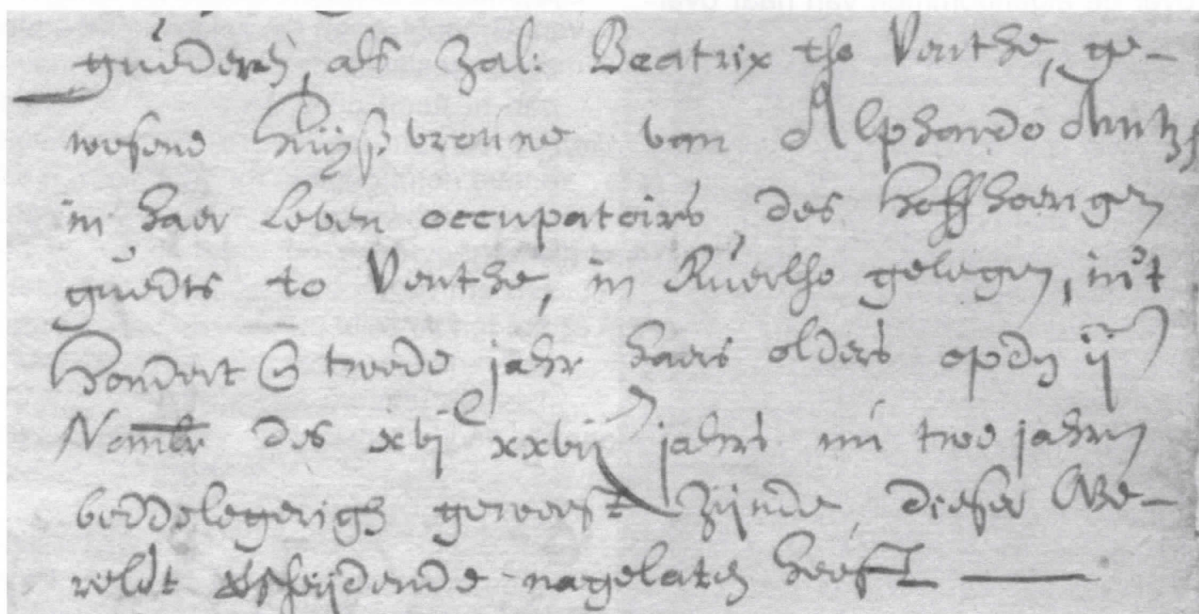 guederen, als Zal: Beatrix tho Venthe, ge-
wesene Huijßvrouwe van Alphardo
in haer Leben occupatoirs des Hoffhoerigen
guedts to Venthe, in Ruerlho gelegen, in't
Hondert & twede jahr haers olders opden ij
Nombr des xvjC xxvij jahrs nu twe jahren
beddelegerigh geweest zijnde, dieser We-
reldt afscheijdende nagelaten heeft